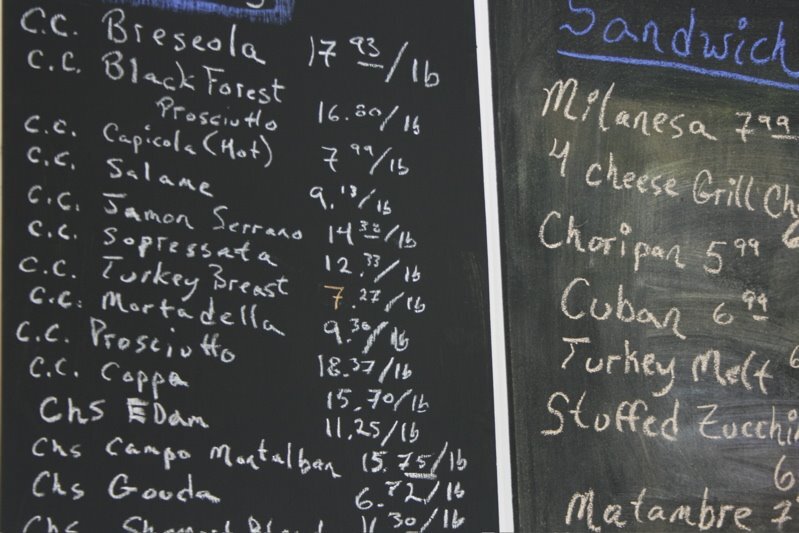 C.C. Breseola 17 93/lb
C.C. Black Forest
Prosciutto 16.80/lb
C.C. Capicola (Hot) 7 99/lb
C.C. Salame 9.13/lb
C.C. Jamon Serrano 14 32/lb
C.C. Sopressata 12.33/lb
C.C. Turkey Breast 7.27/lb
C.C. Mortadella 9.30/lb
C.C. Prosciutto 18.37/lb
C.C. Coppa 15.70/lb
Chs EDam 11.25/lb
Chs Campo Montalban 15.75/lb
Chs Gouda 6.72/lb
Chs 11.30/lb
Sandwich
Milanesa 7 99
4 cheese Grill Ch
Choripan 5 99 6
Cuban 6 99
Turkey Melt 6
Stuffed Zucchi
6
Matambre 7